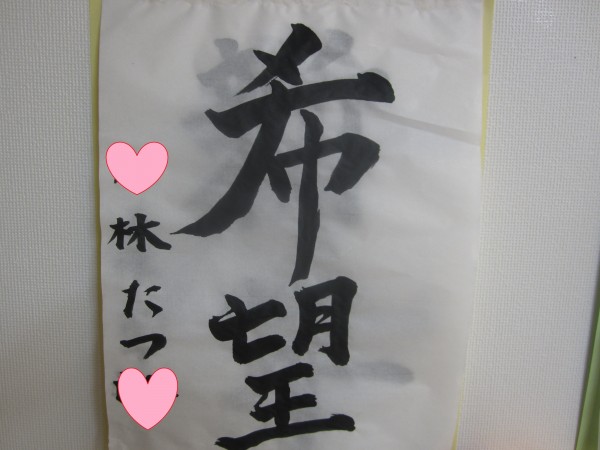 希望
林たつ